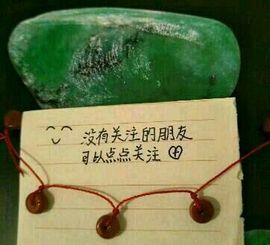 没有关注的朋友
可以点点关注 ⊕